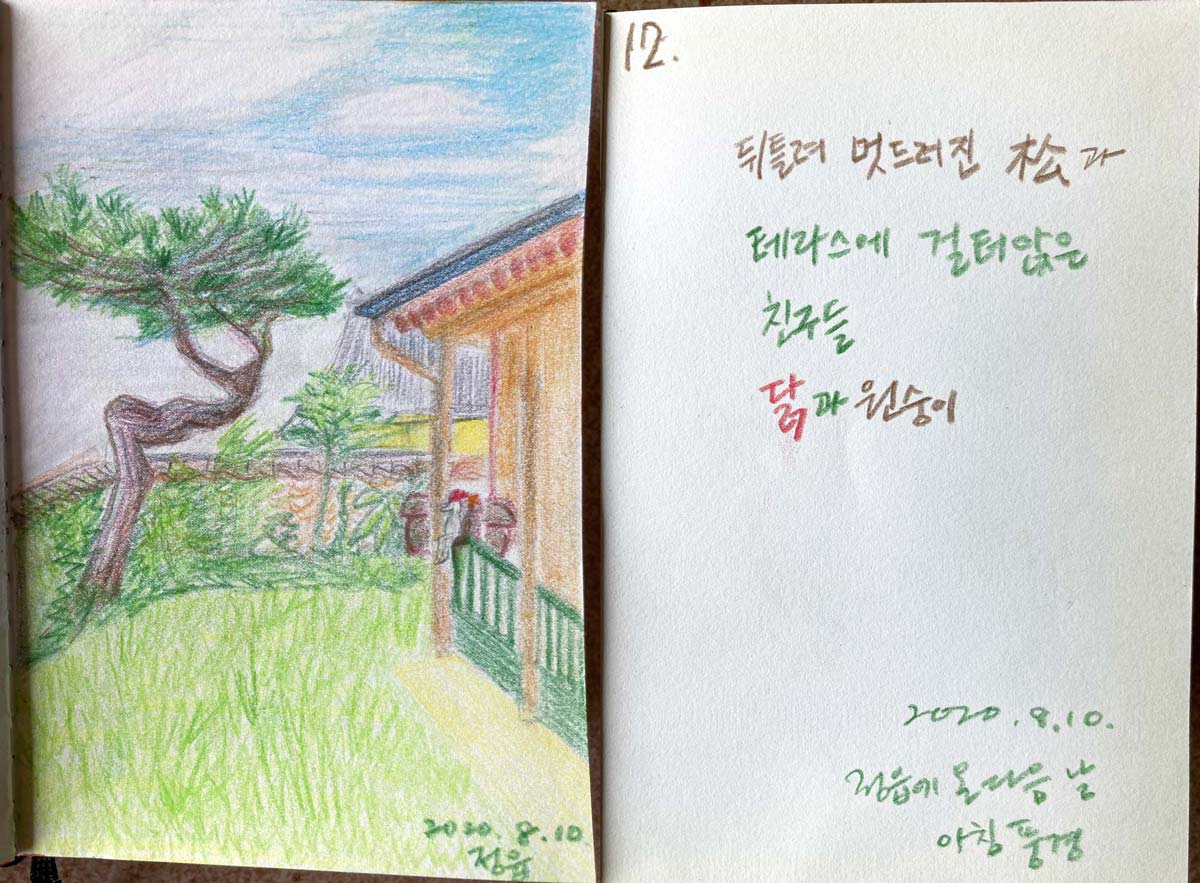 2020. 8.10
정읍
12.
뒤틀려 멋드러진 松과
테라스에 걸터앉은
친구들
닭과 원숭이
2020.8.10.
정읍에 온 다음 날
아침 풍경